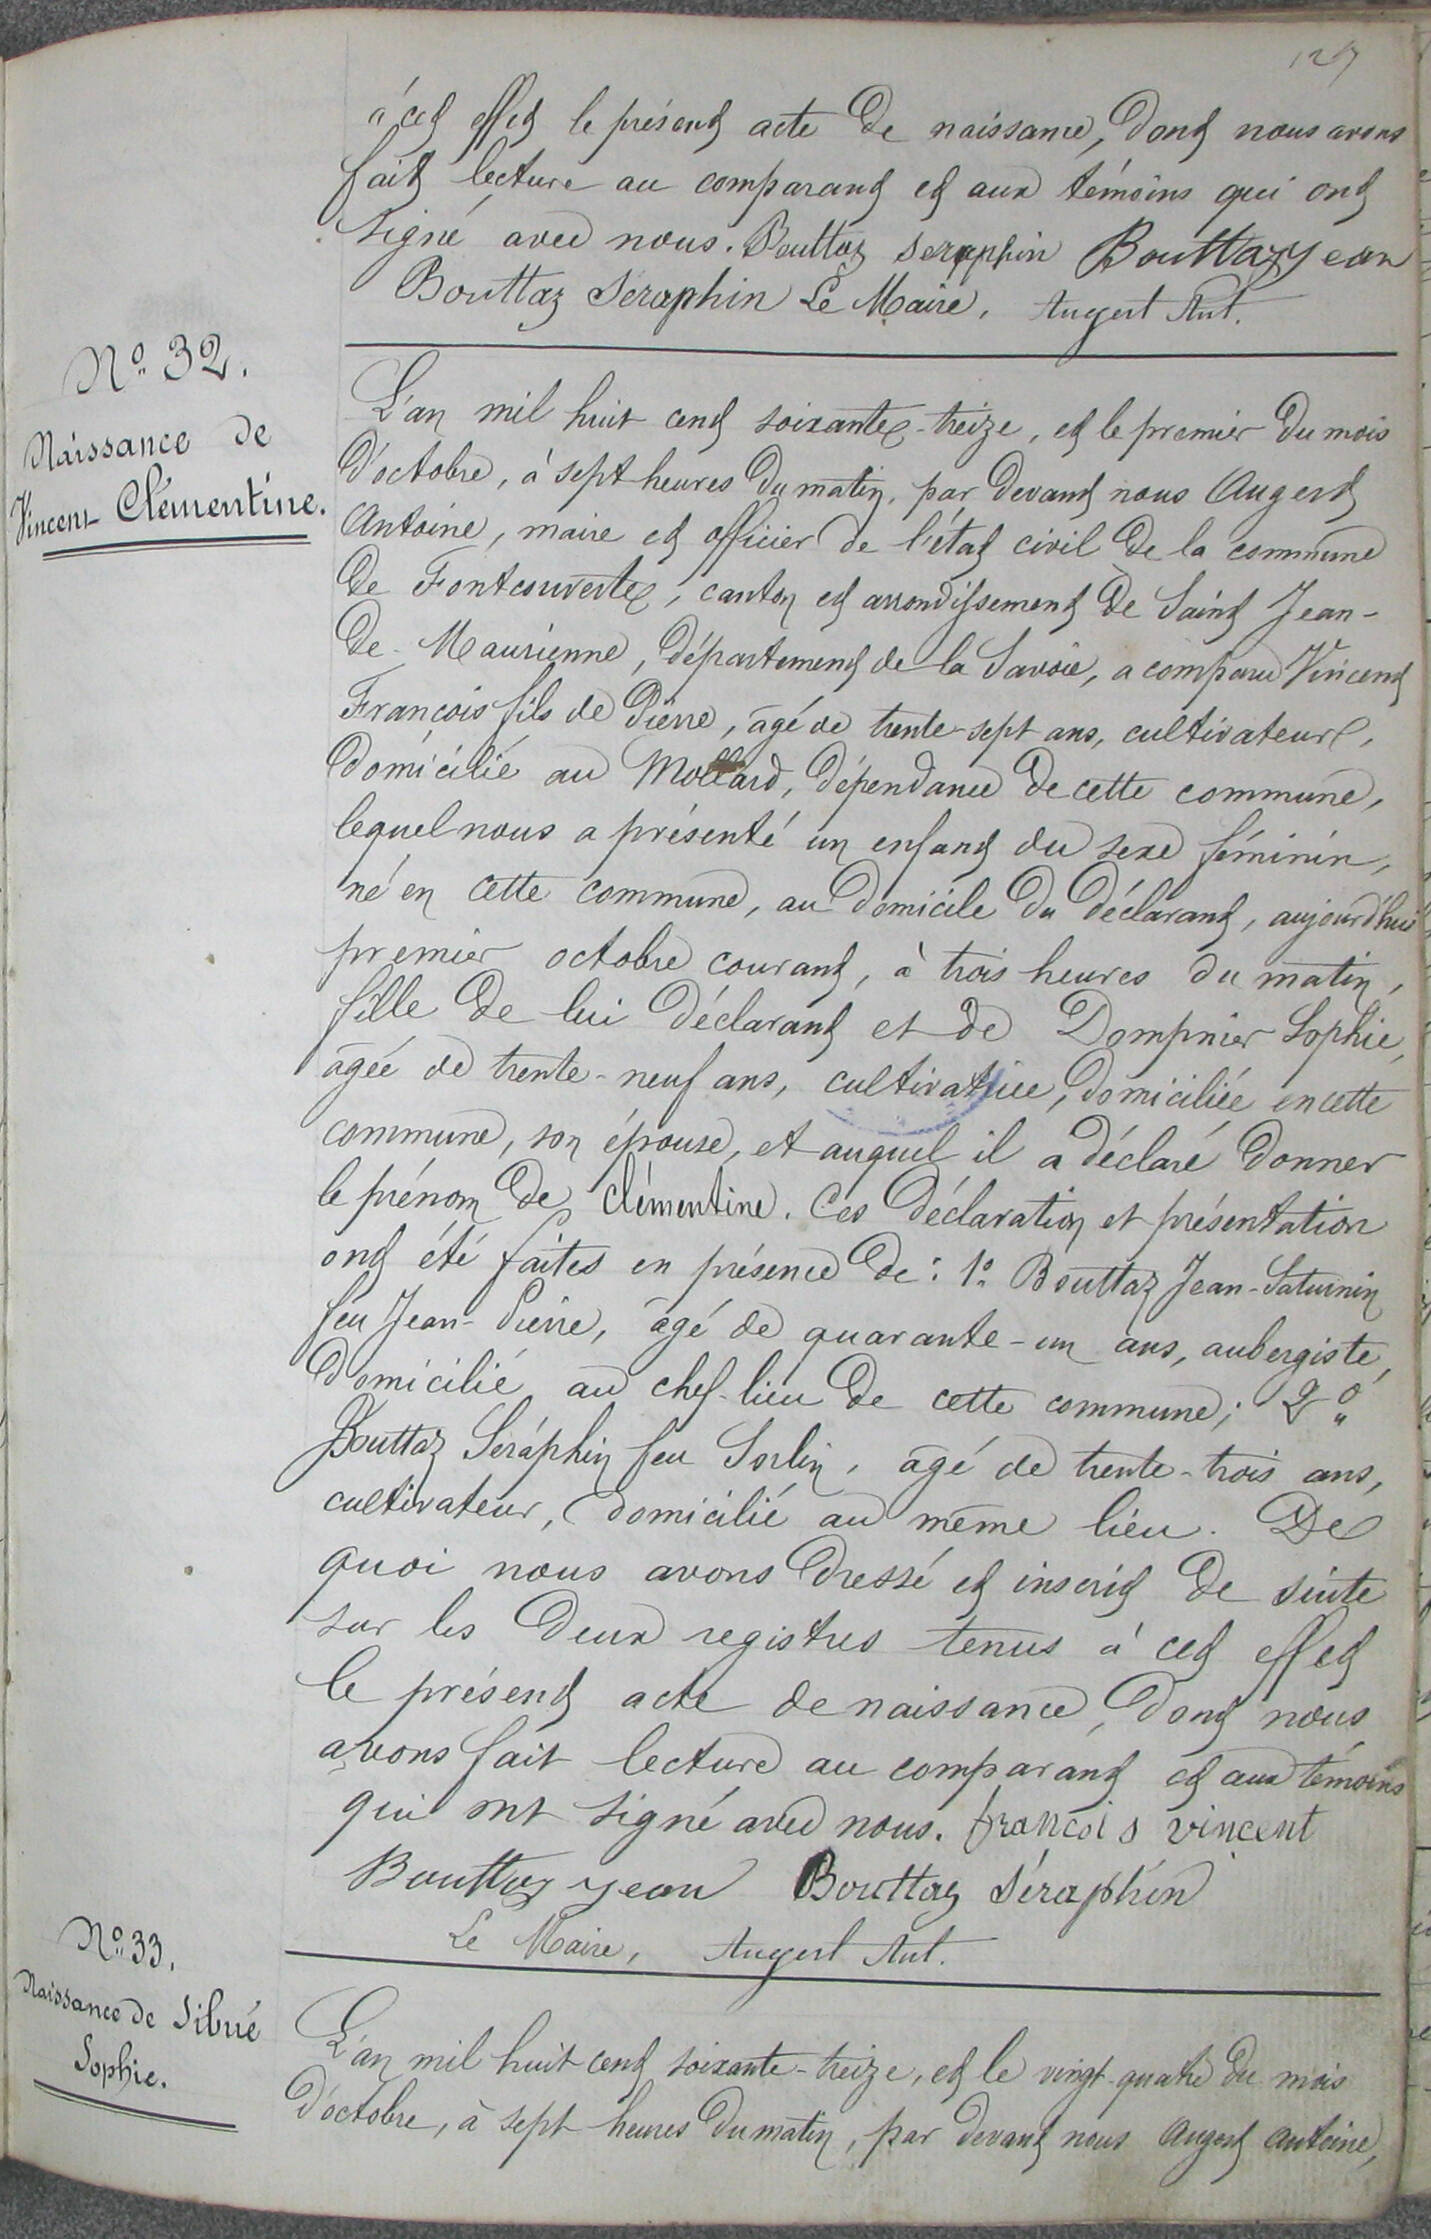 127
à cet effet le présent acte de naissance, dont nous avons
fait lecture au comparant et aux témoins qui ont
signé avec nous. Bouttaz seraphin Bouttaz jean
Bouttaz Séraphin Le Maire, Augert Ant.
N.º 32.
Naissance de
Vincent Clémentine.
L'an mil huit cent soixante-treize, et le premier du mois
d'octobre, à sept heures du matin, par devant nous Augert
Antoine, maire et officier de l'état civil de la commune
de Fontcouverte, canton et arrondissement de Saint Jean-
de-Maurienne, département de la Savoie, a comparu Vincent
François fils de Pierre, âgé de trente-sept ans, cultivateur,
domicilié au Mollard, dépendance de cette commune,
lequel nous a présenté un enfant du sexe féminin,
né en cette commune, au domicile du déclarant, aujourd'hui
premier octobre courant, à trois heures du matin,
fille de lui déclarant et de Dompnier Sophie,
âgée de trente-neuf ans, cultivatrice, domiciliée en cette
commune, son épouse, et auquel il a déclaré donner
le prénom de Clémentine. Ces déclaration et présentation
ont été faites en présence de: 1º Bouttaz Jean-Saturnin
feu Jean-Pierre, âgé de quarante-un ans, aubergiste,
domicilié au chef-lieu de cette commune; 2º
Bouttaz Séraphin feu Sorlin, âgé de trente-trois ans,
cultivateur, domicilié au même lieu. De
quoi nous avons dressé et inscrit de suite
sur les deux registres tenus à cet effet
le présent acte de naissance, dont nous
avons fait lecture au comparant et aux témoins
qui ont signé avec nous. françois vincent
Bouttaz jean Bouttaz Séraphin
Le Maire, Augert Ant.
N.º 33.
Naissance de Sibué
Sophie.
L'an mil huit cent soixante-treize, et le vingt-quatre du mois
d'octobre, à sept heures du matin, par devant nous Augert Antoine,